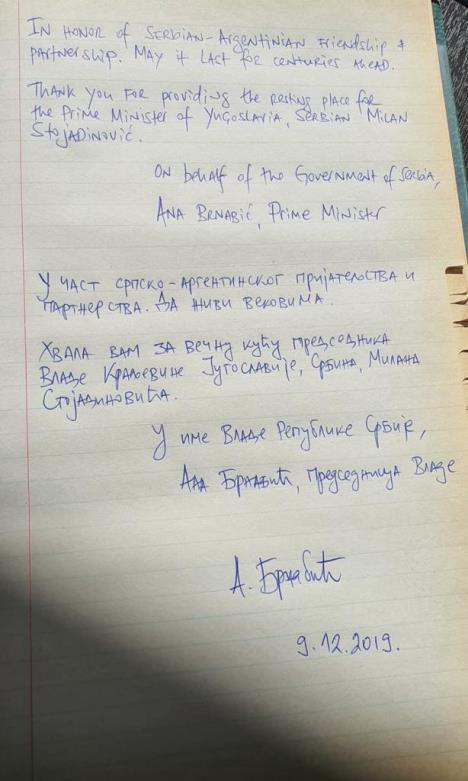 In honor of Serbian-Argentinian friendship &
partnership. May it last for centuries ahead.
Thank you for providing the resting place for
the Prime Minister of Yugoslavia, Serbian Milan
Stojadinović.
On behalf of the Government of Serbia,
Ana Brnabić, Prime Minister
У част српско-аргентинског пријатељства и
партнерства. Да живи вековима.
Хвала вам за вечну кућу председника
Владе Краљевине Југославије, Србина, Милана
Стојадиновића.
У име Владе Републике Србије,
Ана Брнабић, Председница Владе
А. Брнабић
9.12.2019.